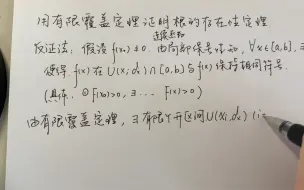 用有限覆盖定理证明根的存在性定理
反证法,假设 f(x)≠0. 由连续函数局部保号性知,∀x∈[a,b],∃
使得 f(x) 在 U(x;dx)∩[a,b] 与 f(x) 保持相同符号.
(具体:① f(x)>0, ∃... f(x)>0)
由有限覆盖定理,∃有限个开区间 U(xi,dx) (i=